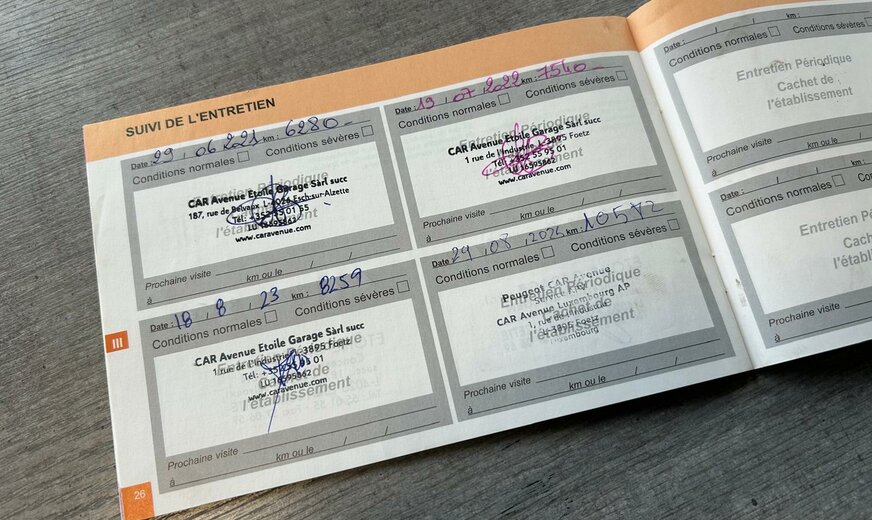 SUIVI DE L'ENTRETIEN
Date : 29 06 2021 km : 6280
Conditions normales Conditions sévères
Entretien Périodique
CAR Avenue Etoile Garage Sàrl succ
187, rue de Belvaux L-4026 Esch-sur-Alzette
www.caravenue.com
l'établissement
Prochaine visite
à km ou le / /
Date : 19 07 2022 km : 7540
Conditions normales Conditions sévères
Entretien Périodique
CAR Avenue Etoile Garage Sàrl succ
1 rue de l'Industrie L-3895 Foetz
Tél: +352 55 95 01
LU 16595862
www.caravenue.com
Prochaine visite
à km ou le / /
Date : 18 8 23 km : 8259
Conditions normales Conditions sévères
CAR Avenue Etoile Garage Sàrl succ
1 rue de l'Industrie L-3895 Foetz
LU 16595862
www.caravenue.com
l'établissement
Prochaine visite
à km ou le / /
Date : km : 10572
Conditions normales Conditions sévères
Entretien Périodique
Peugeot CAR Avenue
CAR Avenue Luxembourg AP
Cachet de
L-3895 Foetz
l'établissement
Luxembourg
Prochaine visite
à km ou le / /
III
26
Date : / / km :
Conditions normales Conditions sévères
Entretien Périodique
Cachet de
l'établissement
Prochaine visite
à km ou le
Date : / / km :
Conditions normales Cond
Entretien P
Cache
l'établi
Prochaine visite
à km